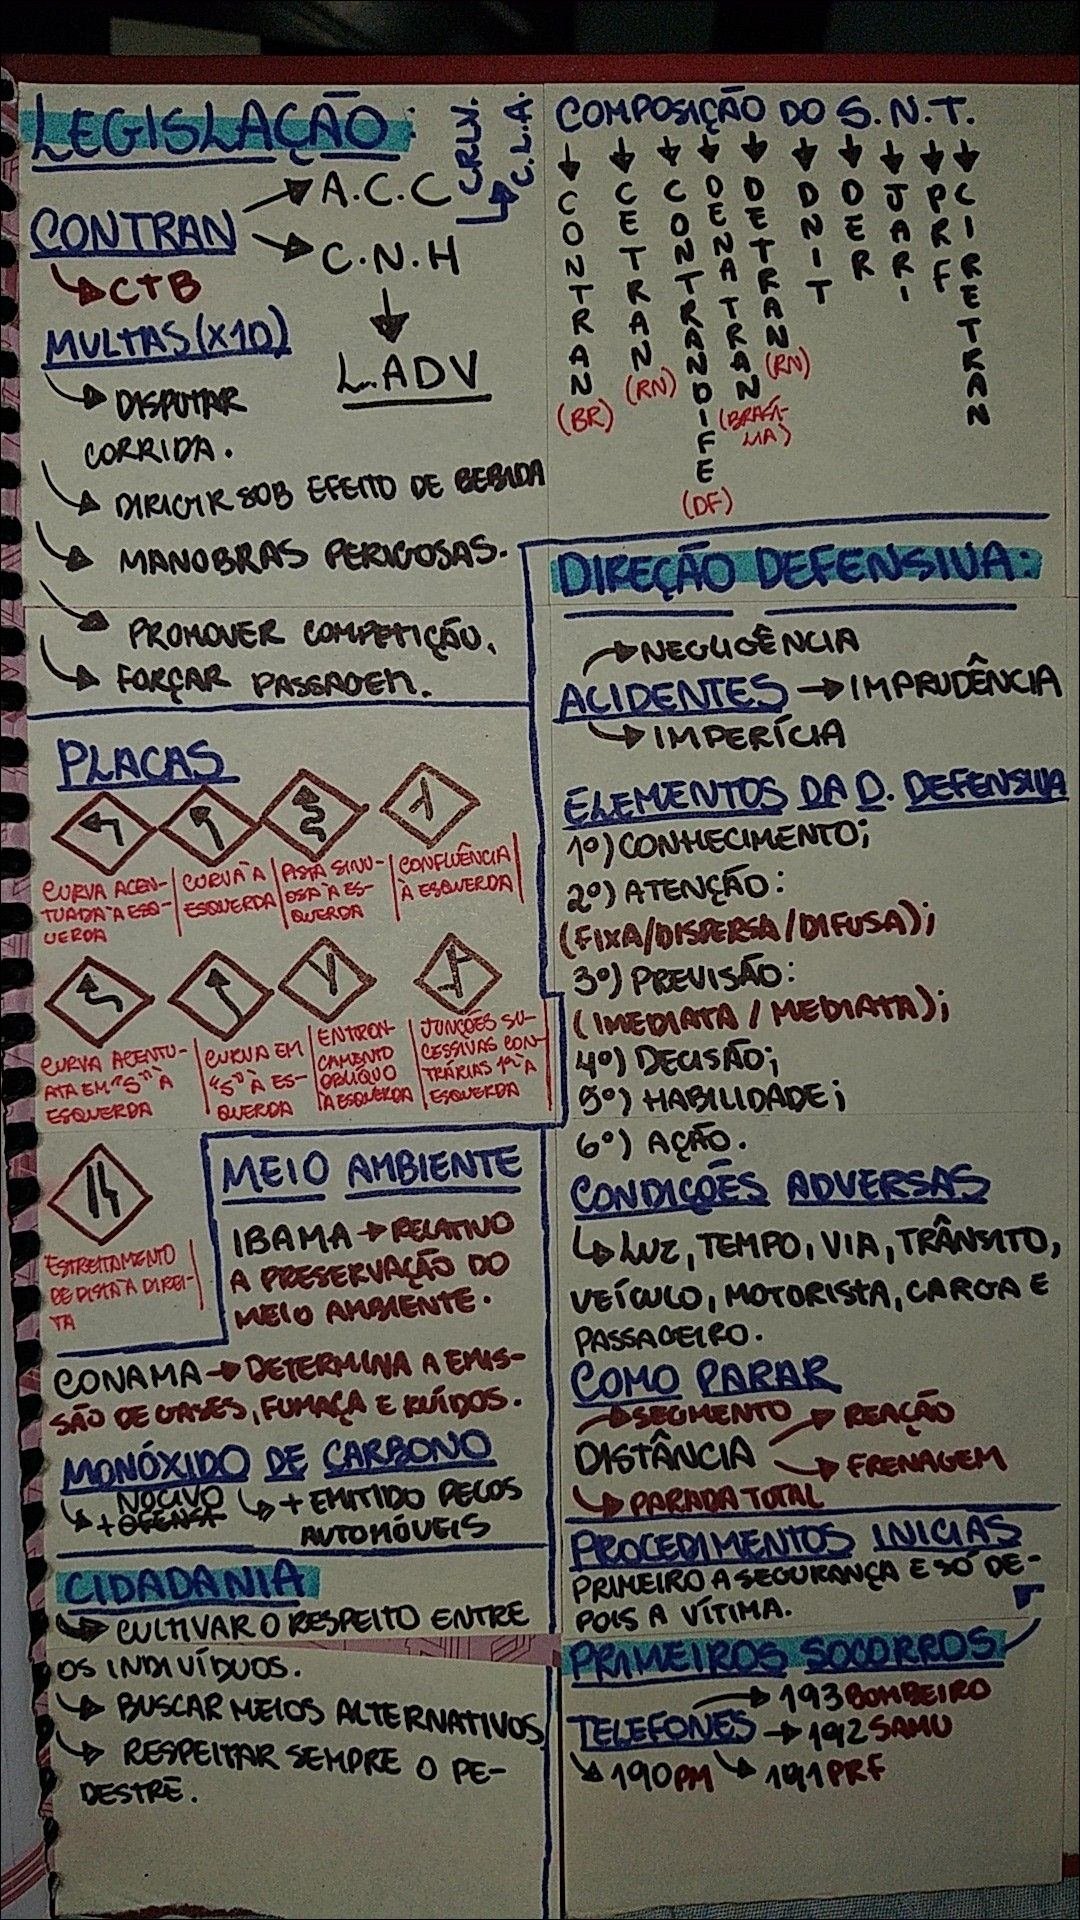 LEGISLAÇÃO:
CONTRAN
A.C.C
C.R.L.V.
C.L.A.
C.N.H
CTB
L.ADV
MULTAS (X10)
DISPUTAR
CORRIDA.
DIRIGIR SOB EFEITO DE BEBIDA
MANOBRAS PERIGOSAS.
PROMOVER COMPETIÇÃO.
FORÇAR PASSAGEM.
COMPOSIÇÃO DO S.N.T.
CONTRAN
(BR)
CETRAN
(RN)
CONTRANDIFE
(DF)
DENATRAN
(BRASÍ-
LIA)
DETRAN
(RN)
DNIT
DER
JARI
PRF
CIRETRAN
PLACAS
CURVA ACEN-
TUADA À ESQ-
UERDA
CURVA À
ESQUERDA
PISTA SINU-
OSA À ES-
QUERDA
CONFLUÊNCIA
À ESQUERDA
CURVA ACENTU-
ATA EM "S" À
ESQUERDA
CURVA EM
"S" À ES-
QUERDA
ENTRON-
CAMENTO
OBLÍQUO
À ESQUERDA
JUNÇÕES SU-
CESSIVAS CON-
TRÁRIAS 1ª À
ESQUERDA
ESTREITAMENTO
DE PISTA À DIREI-
TA
MEIO AMBIENTE
IBAMA → RELATIVO
A PRESERVAÇÃO DO
MEIO AMBIENTE.
CONAMA → DETERMINA A EMIS-
SÃO DE GASES, FUMAÇA E RUÍDOS.
MONÓXIDO DE CARBONO
NOCIVO
+ OFENSA
+ EMITIDO PELOS
AUTOMÓVEIS
CIDADANIA
CULTIVAR O RESPEITO ENTRE
OS INDIVÍDUOS.
BUSCAR MEIOS ALTERNATIVOS
RESPEITAR SEMPRE O PE-
DESTRE.
DIREÇÃO DEFENSIVA:
NEGLIGÊNCIA
ACIDENTES → IMPRUDÊNCIA
IMPERÍCIA
ELEMENTOS DA D. DEFENSIVA
1º) CONHECIMENTO;
2º) ATENÇÃO:
(FIXA/DISPERSA/DIFUSA);
3º) PREVISÃO:
(IMEDIATA / MEDIATA);
4º) DECISÃO;
5º) HABILIDADE;
6º) AÇÃO.
CONDIÇÕES ADVERSAS
LUZ, TEMPO, VIA, TRÂNSITO,
VEÍCULO, MOTORISTA, CARGA E
PASSAGEIRO.
COMO PARAR
SEGMENTO
REAÇÃO
DISTÂNCIA
FRENAGEM
PARADA TOTAL
PROCEDIMENTOS INICIAS
PRIMEIRO A SEGURANÇA E SÓ DE-
POIS A VÍTIMA.
PRIMEIROS SOCORROS
193 BOMBEIRO
TELEFONES → 192 SAMU
190 PM
191 PRF